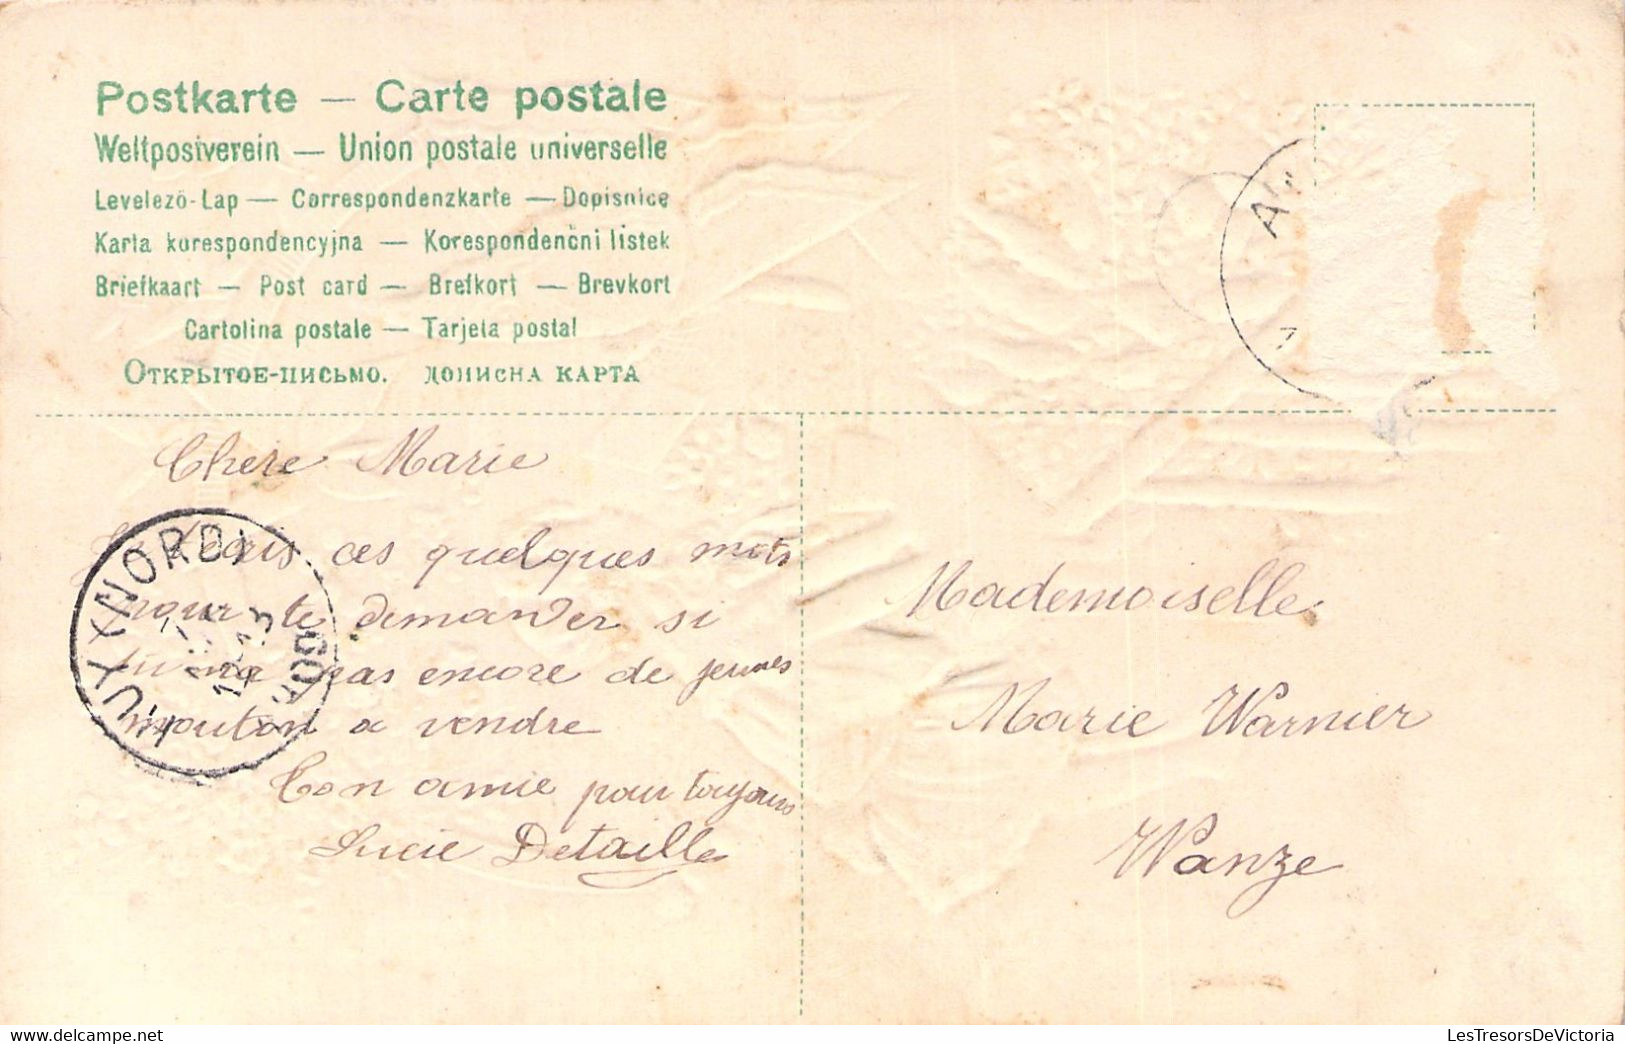 Postkarte — Carte postale
Weltpostverein — Union postale universelle
Levelezö-Lap — Correspondenzkarte — Dopisnice
Karta korespondencyjna — Korespondenčni listek
Briefkaart — Post card — Brefkort — Brevkort
Cartolina postale — Tarjeta postal
Открытое-письмо. дописна карта
Chere Marie
Je t'ecris ces quelques mots
pour te demander si
tu na pas encore de jeunes
mouton a vendre
Ton amie pour toujours
Lucie Detaille
Mademoiselle
Marie Warnier
Wanze
UY (NORD)
LesTresorsDeVictoria
https://www.delcampe.net